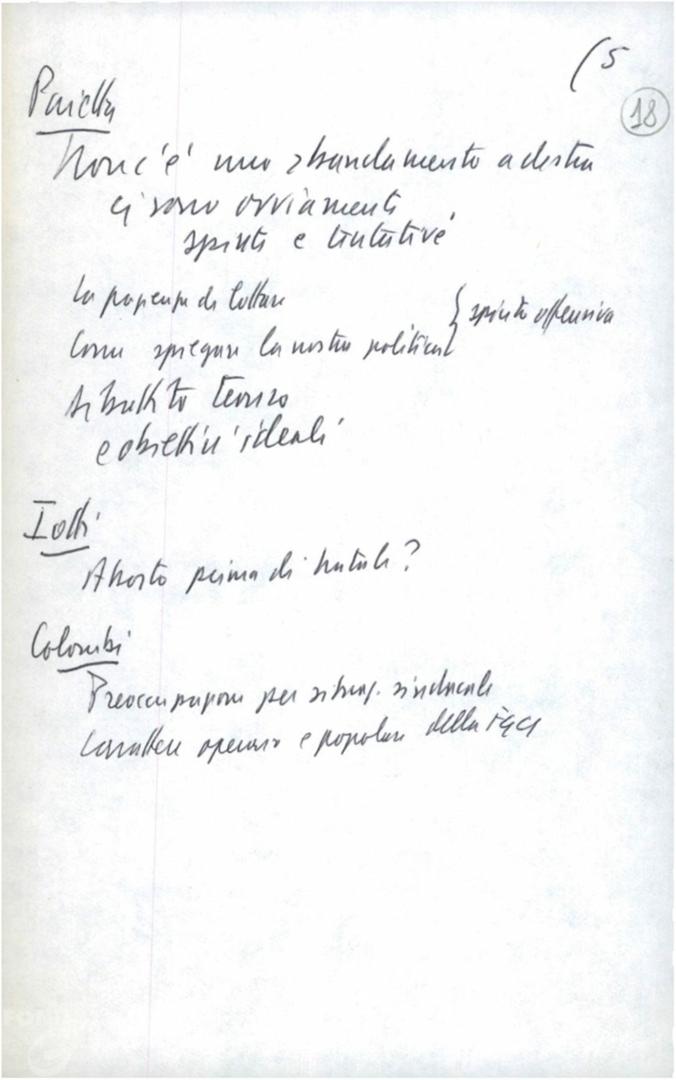 (5
18
Pajetta
Non c'è uno sbandamento a destra
ci sono ovviamente
spinte e tentative
La propensione di lottare
Come spiegare la nostra politica } spinta offensiva
Dibattito teorico
e obiettivi ideali
Iotti
Aborto prima di Natale?
Colombi
Preoccupazione per situaz. sindacale
Carattere operaio e popolare della FGCI